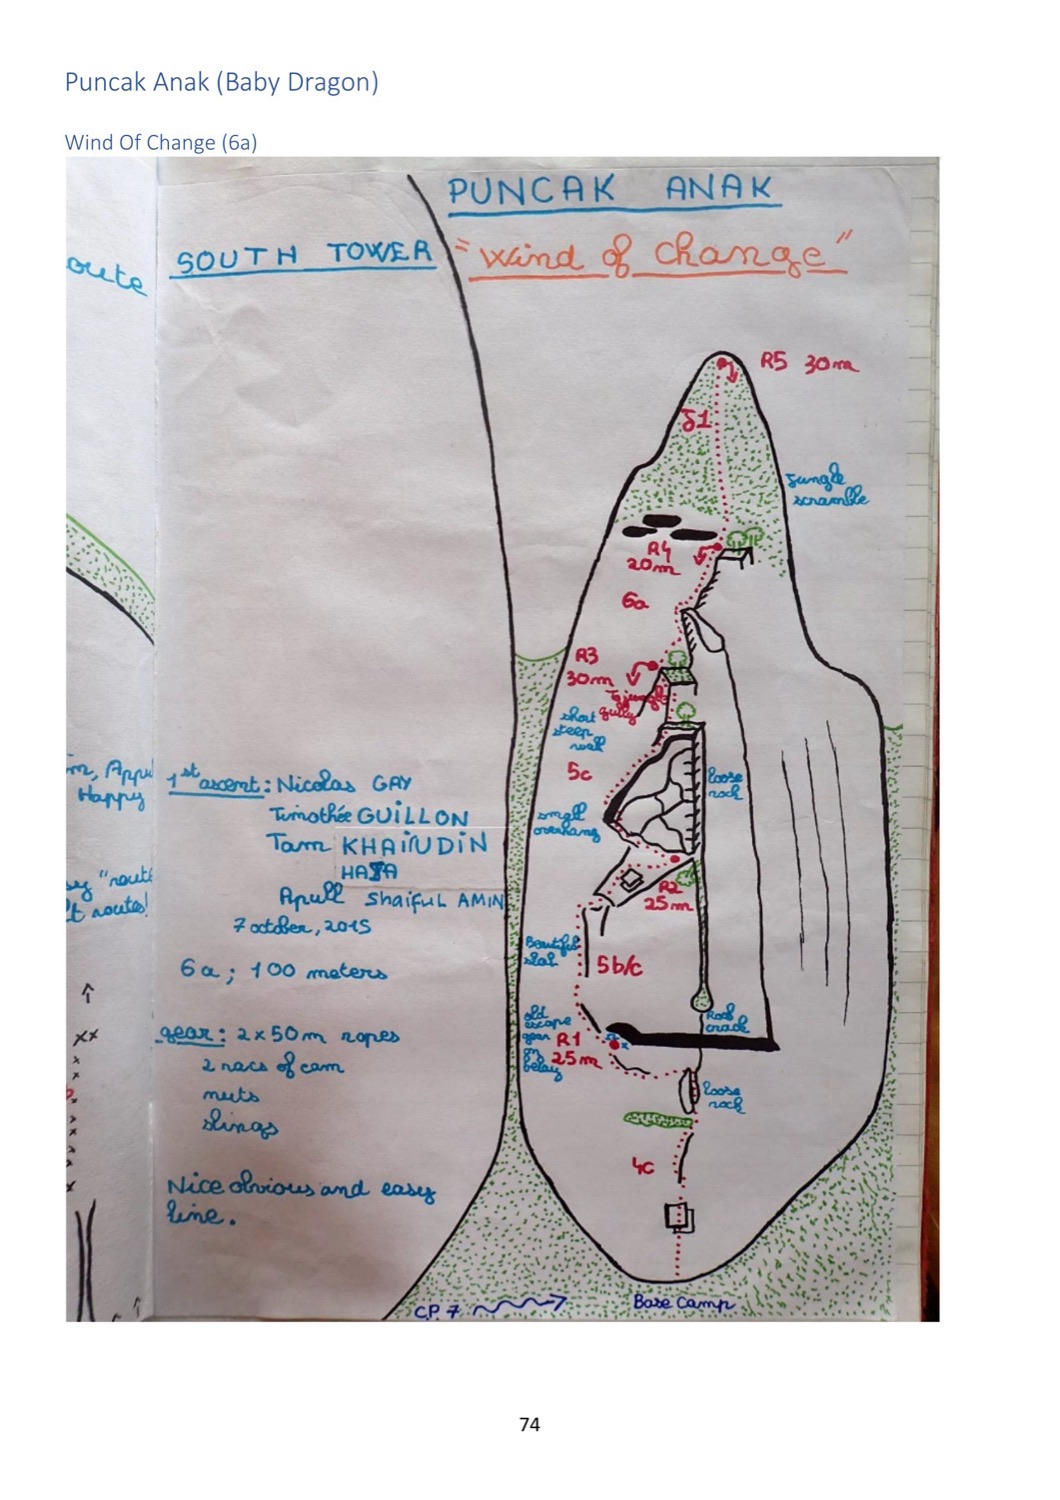 Puncak Anak (Baby Dragon)
Wind Of Change (6a)
PUNCAK ANAK
SOUTH TOWER "Wind of change"
oute
R5 30m
J1
Jungle
scramble
R4
20m
6a
R3
30m
To jungle
gully
short
steep
wall
5c
loose
rock
small
overhang
R2
25m
Beautiful
slab
5b/c
old
escape
gear
on
belay
R1
25m
Roof
crack
loose
rock
4c
Base Camp
C.P. 7
m, Apu
Happy
sy "route
t routes!
1st ascent: Nicolas GAY
Timothée GUILLON
Tam KHAIRUDIN
HAJA
Apull Shaiful AMIN
7 october, 2015
6a ; 100 meters
gear: 2 x 50m ropes
2 racs of cam
nuts
slings
Nice obvious and easy
line.
74